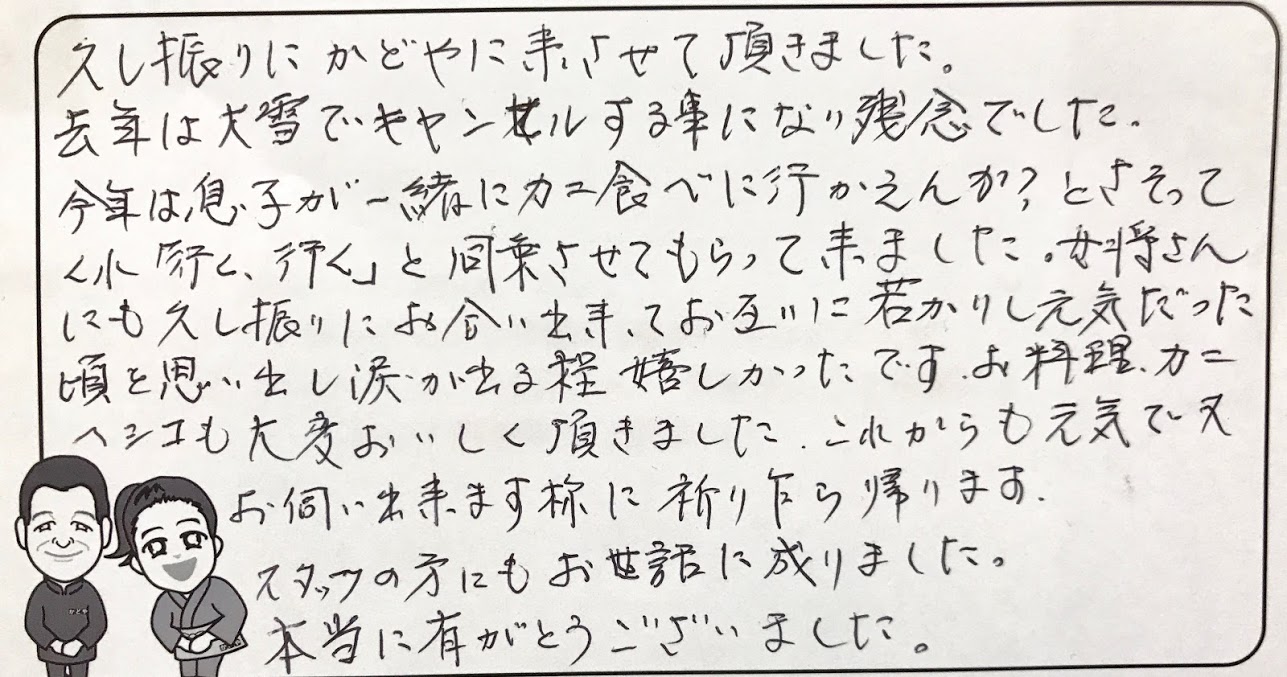 久し振りにかどやに来させて頂きました。
去年は大雪でキャンセルする事になり残念でした.
今年は息子が一緒にカニ食べに行かえんか?とさそって
くれ「行く、行く」と同乗させてもらって来ました。女将さん
にも久し振りにお会い出来てお互いに若かりし元気だった
頃を思い出し涙が出る程嬉しかったです.お料理、カニ
ヘシコも大変おいしく頂きました.これからも元気で又
お伺い出来ます様に祈り乍ら帰ります.
スタッフの方にもお世話に成りました。
本当に有がとうございました。
かどや